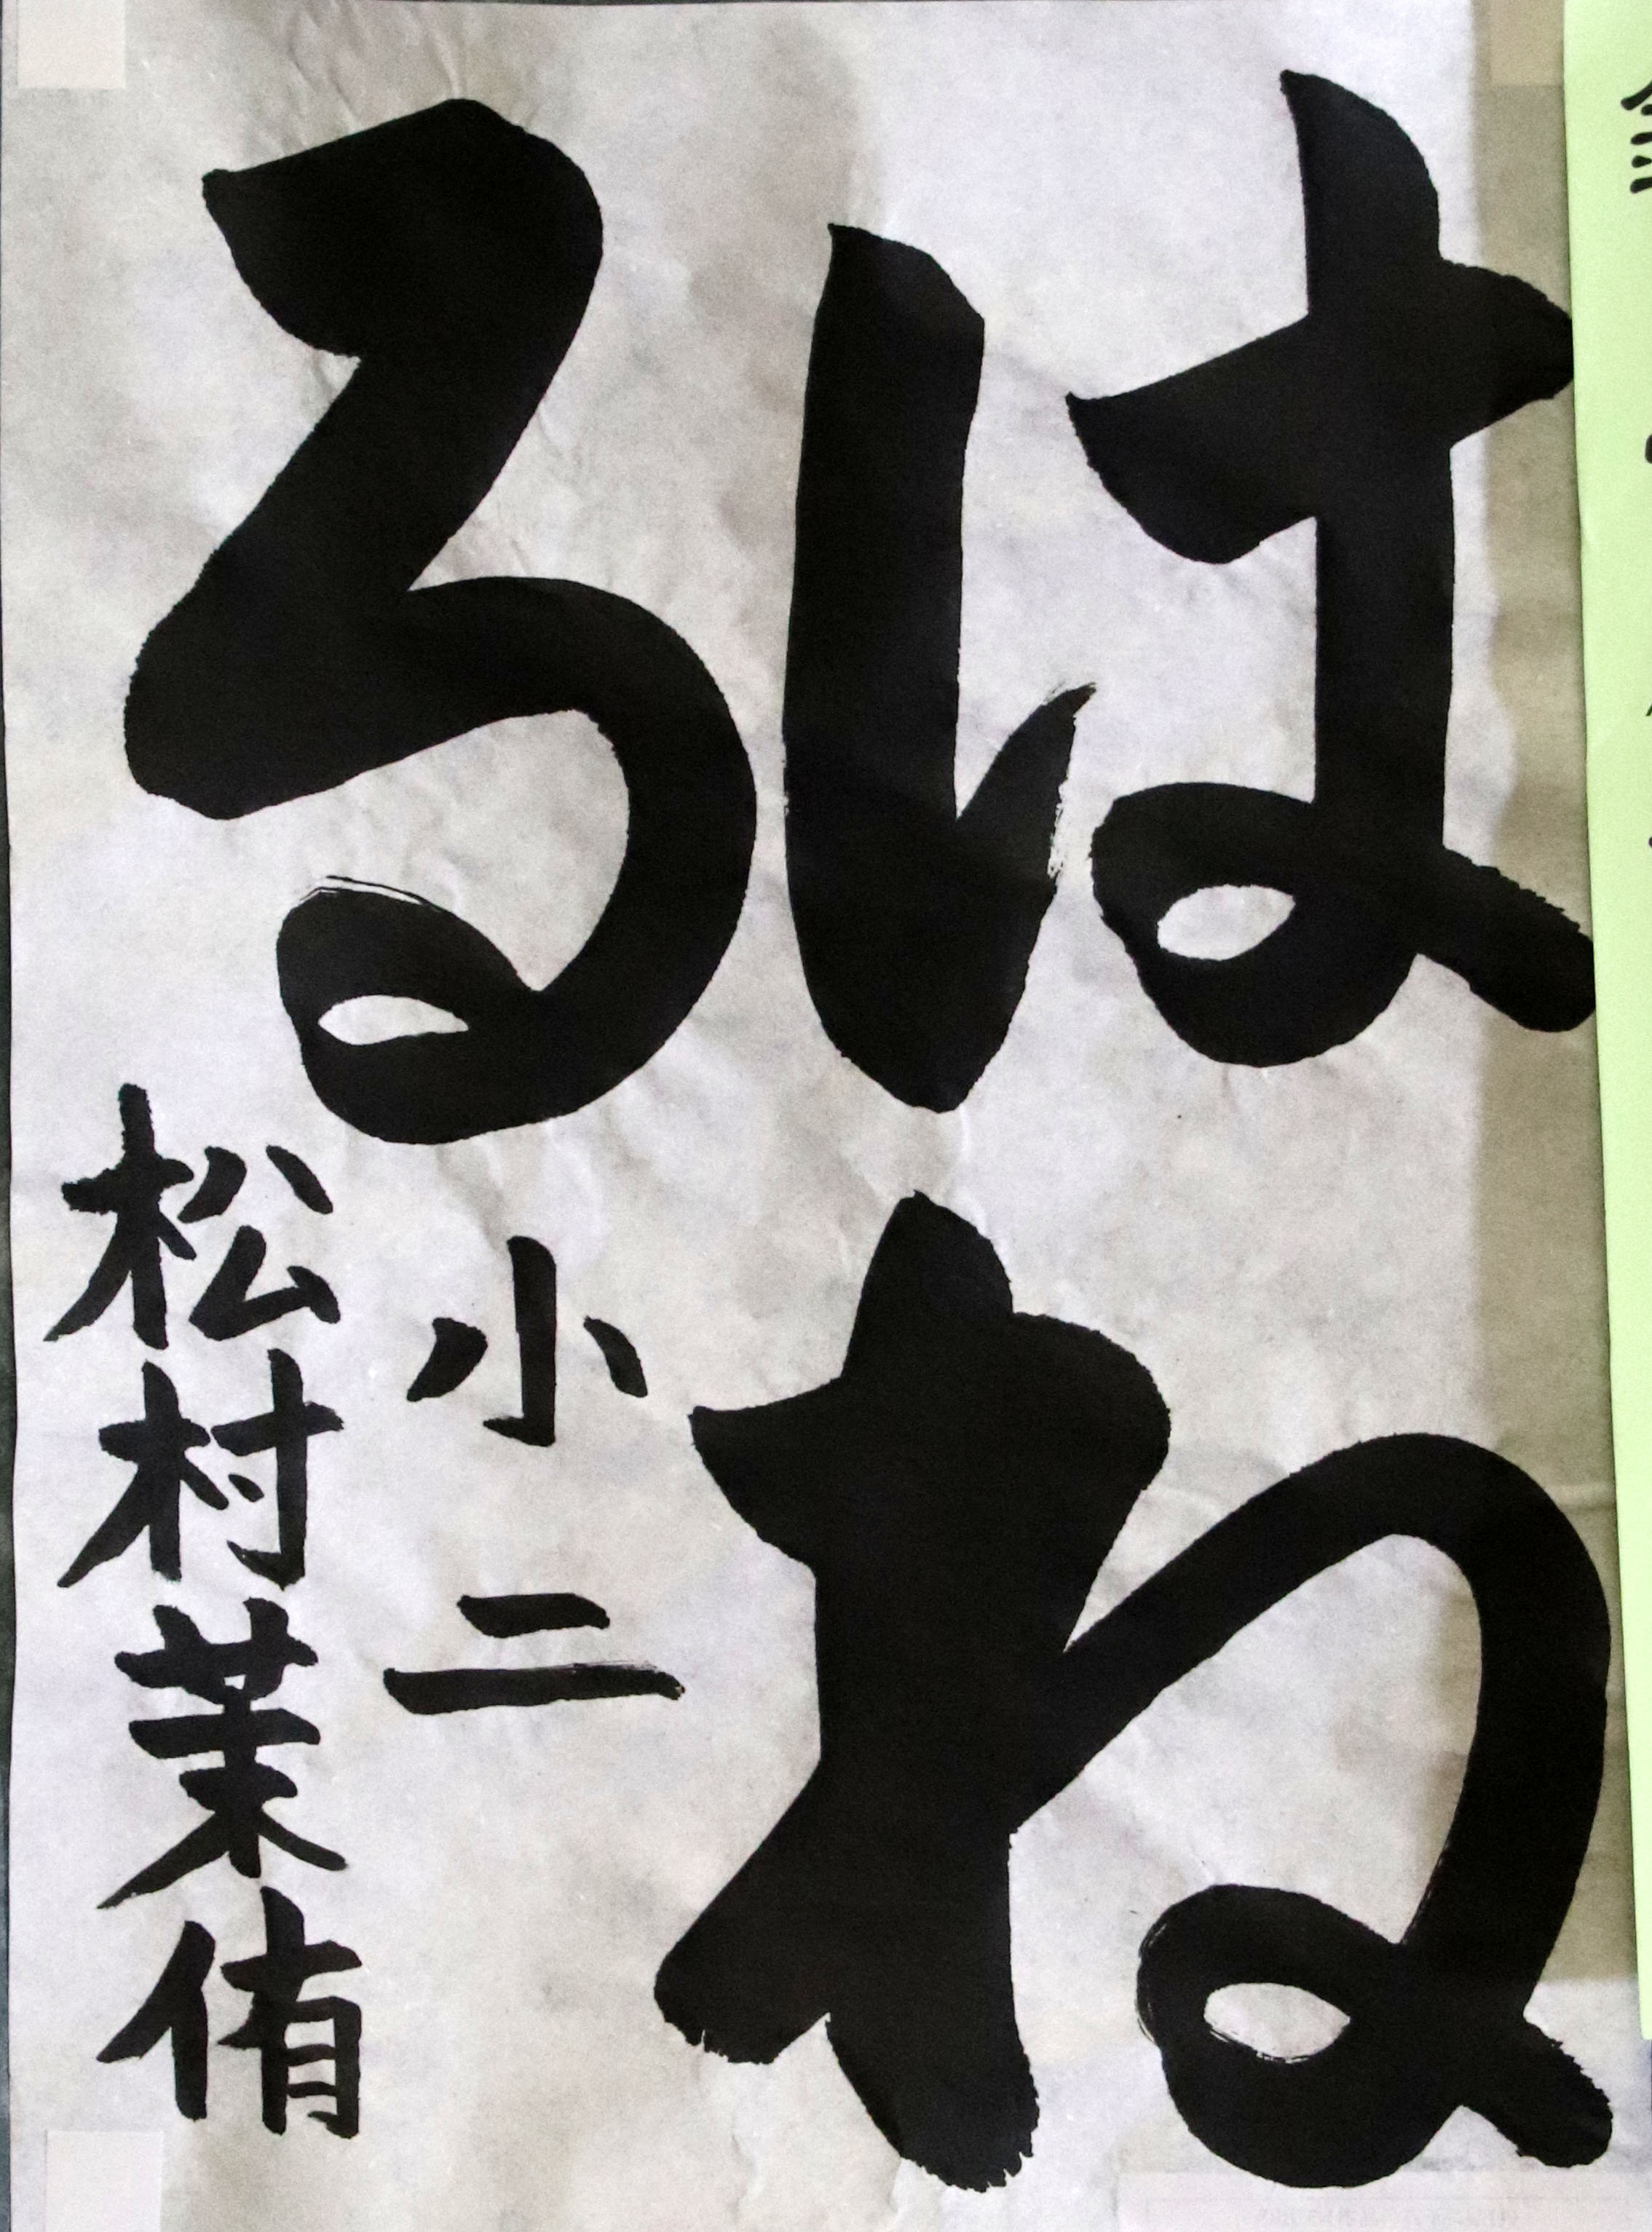 はね
る
小二
松村茉侑